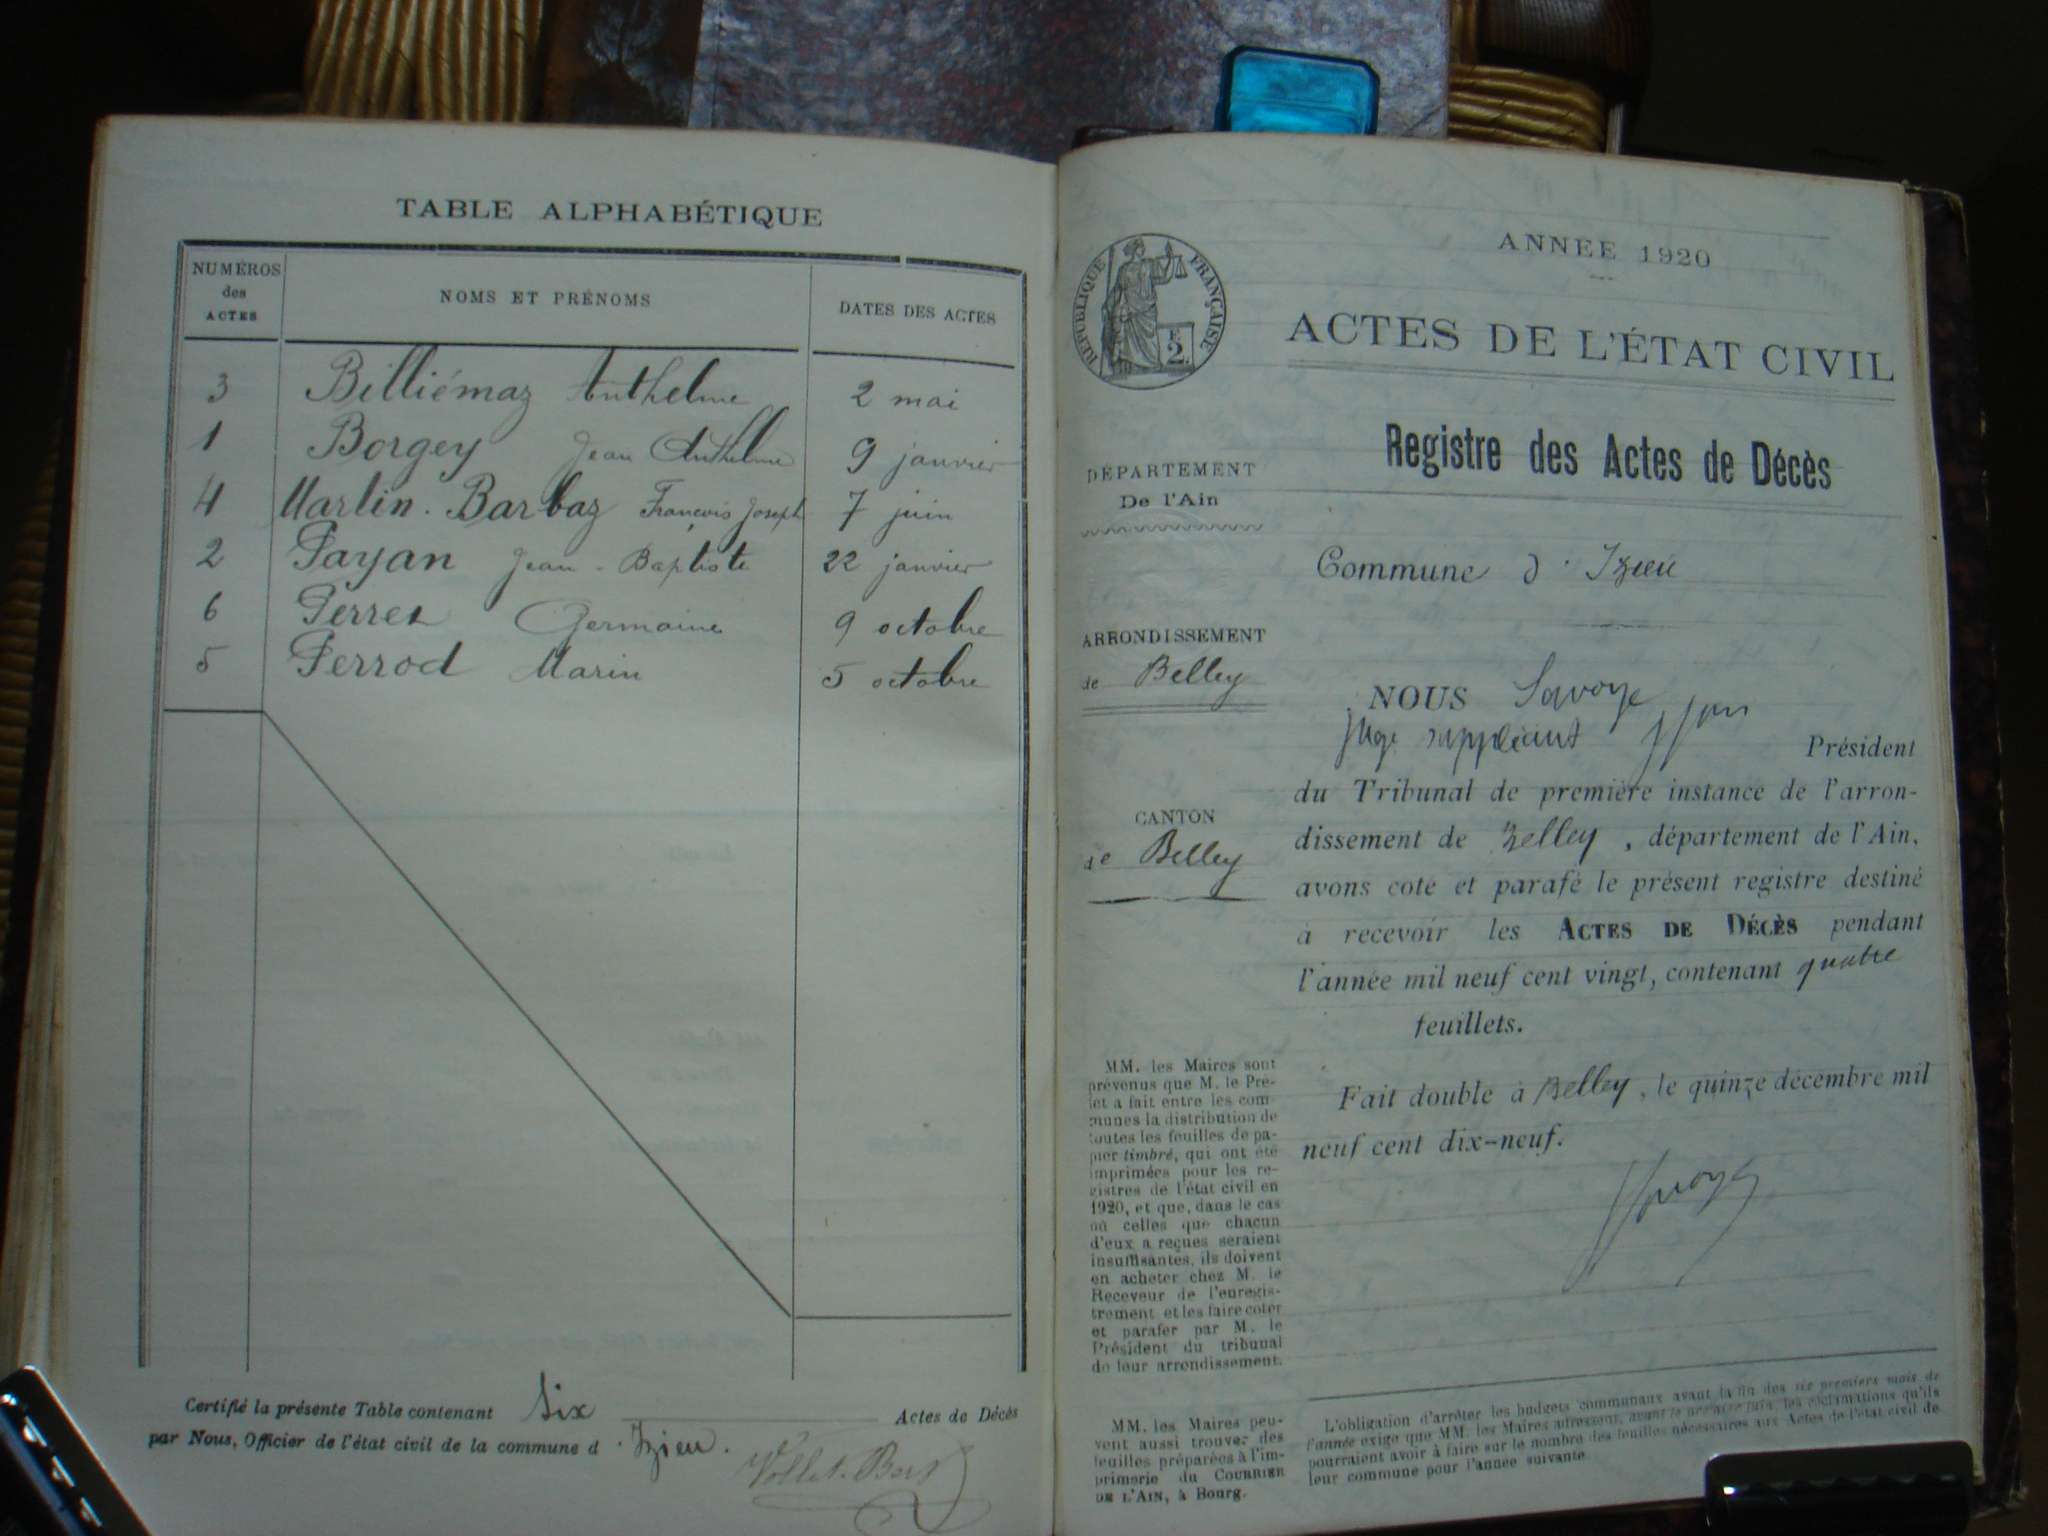 TABLE ALPHABÉTIQUE
NUMÉROS des ACTES
NOMS ET PRÉNOMS
DATES DES ACTES
3 Billiémaz Anthelme 2 mai
1 Borgey Jean Anthelme 9 janvier
4 Martin-Barbaz François Joseph 7 juin
2 Payan Jean-Baptiste 22 janvier
6 Perret Germaine 9 octobre
5 Perrod Marin 5 octobre
Certifié la présente Table contenant Six Actes de Décès
par Nous, Officier de l'état civil de la commune d'Izieu.
RÉPUBLIQUE FRANÇAISE
2
ANNEE 1920
ACTES DE L'ÉTAT CIVIL
Registre des Actes de Décès
DÉPARTEMENT
De l'Ain
Commune d'Izieu
ARRONDISSEMENT
de Belley
CANTON
de Belley
NOUS Savoye
Juge suppléant
Président
du Tribunal de première instance de l'arron-
dissement de Belley, département de l'Ain,
avons coté et parafé le présent registre destiné
à recevoir les ACTES DE DÉCÈS pendant
l'année mil neuf cent vingt, contenant quatre
feuillets.
Fait double à Belley, le quinze décembre mil
neuf cent dix-neuf.
Savoye
MM. les Maires sont
prévenus que M. le Pré-
fet a fait entre les com-
munes la distribution de
toutes les feuilles de pa-
pier timbré, qui ont été
imprimées pour les re-
gistres de l'état civil en
1920, et que, dans le cas
où celles que chacun
d'eux a reçues seraient
insuffisantes, ils doivent
en acheter chez M. le
Receveur de l'enregis-
trement et les faire coter
et parafer par M. le
Président du tribunal
de leur arrondissement.
MM. les Maires peu-
vent aussi trouver des
feuilles préparées à l'im-
primerie du COURRIER
DE L'AIN, à Bourg.
L'obligation d'arrêter les budgets communaux avant la fin des six premiers mois de
l'année exige que MM. les Maires adressent, avant le premier juin, les réclamations qu'ils
pourraient avoir à faire sur le nombre des feuilles nécessaires aux Actes de l'état civil de
leur commune pour l'année suivante.